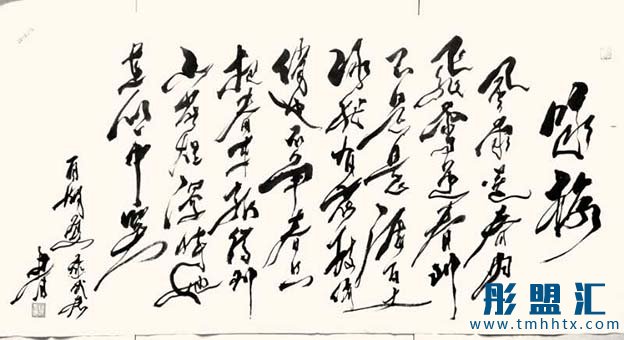 咏梅
风雨送春归
飞雪迎春到
已是悬崖百丈
冰犹有花枝俏
俏也不争春只
把春来报待到
山花烂漫时她
在丛中笑
彤盟汇
www.tmhhtx.com